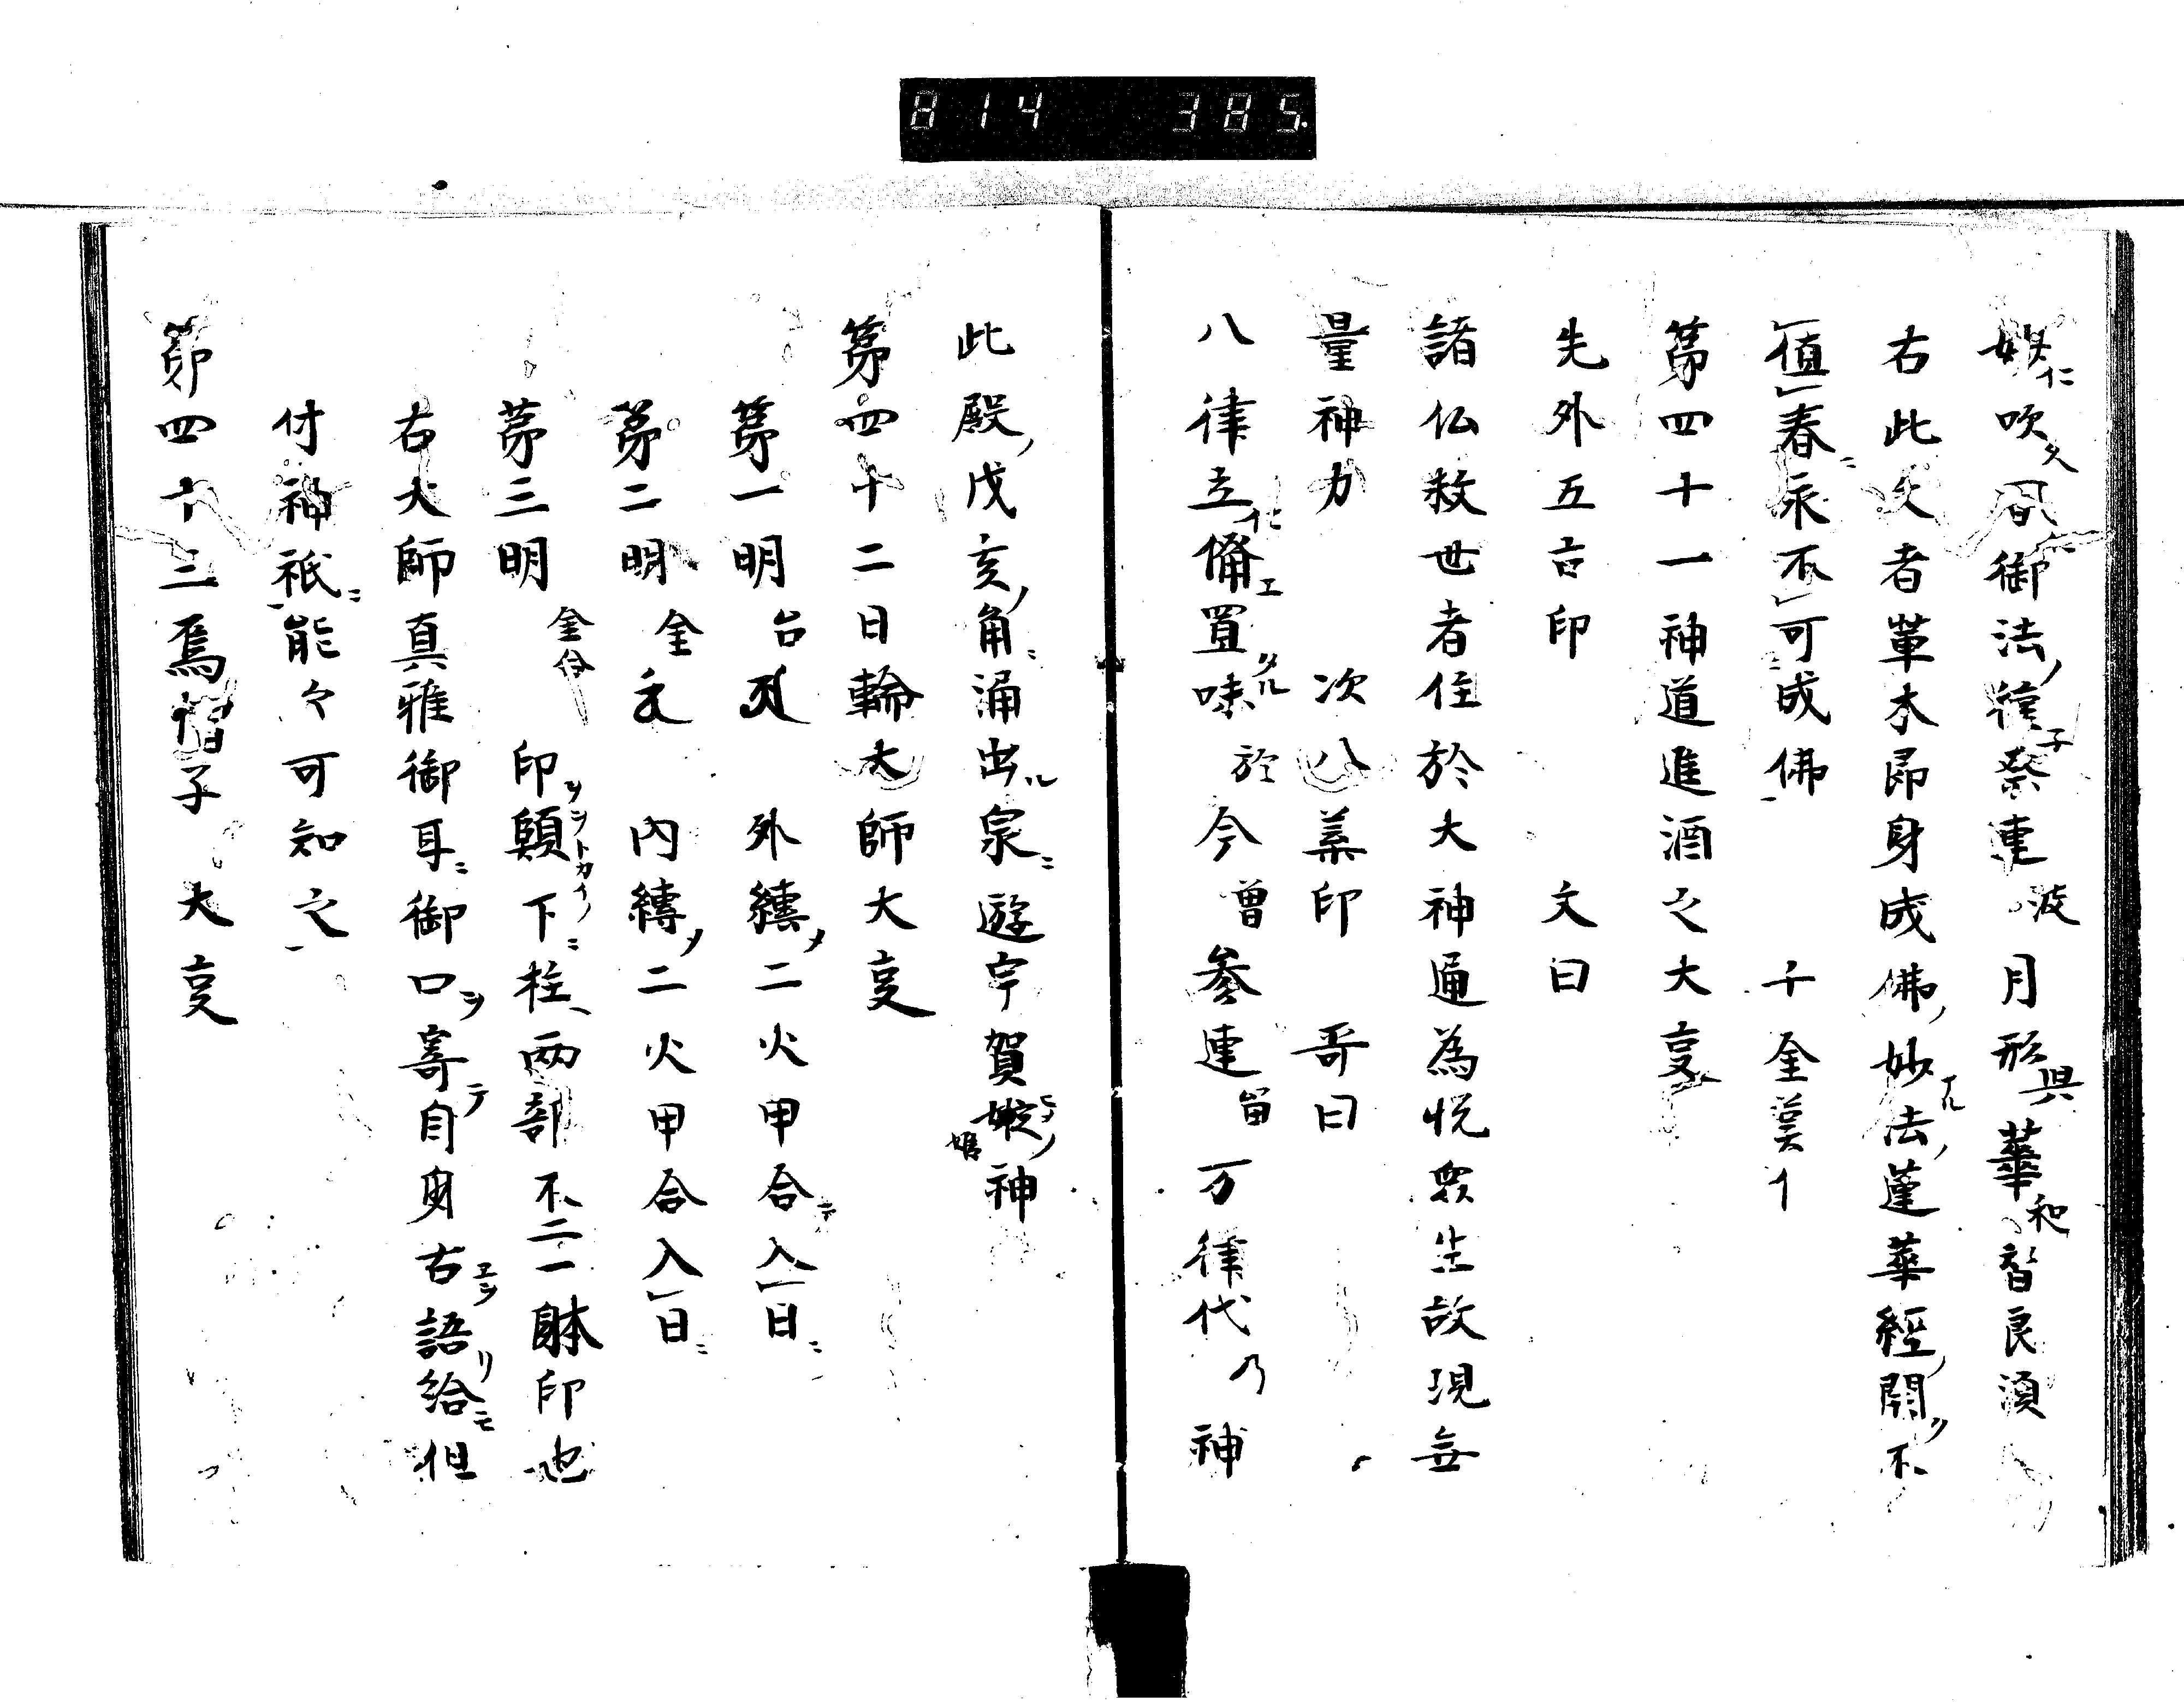 814 385.
嫐仁吹久風御法ノ種子發連波月形具華和智良須
右此文者草木即身成佛ノ妙ナル法ノ蓮華經ノ開ク不
値春ニ永不可成佛 千金莫イ
第四十一神道進酒之大事
先外五古印 文曰
諸仏救世者住於大神通為悦衆生故現無
量神力 次八葉印 哥曰
八律立仁備エ置タル味於今曽参連留万律代乃神
此殿ノ戌亥ノ角ニ涌出ル泉ニ遊宇賀嫐ノ神
第四十二日輪大師大事
第一明 台 外縛ノ二火甲合テ入日ニ
第二明 金 内縛ノ二火甲合入日ニ
第三明 金台 印ヲ顕下ニ柱両部不二一躰印也
右大師真雅御耳ニ御口ヲ寄テ自身右語リ給モ但
付神祇ニ能々可知之
第四十三烏帽子大事